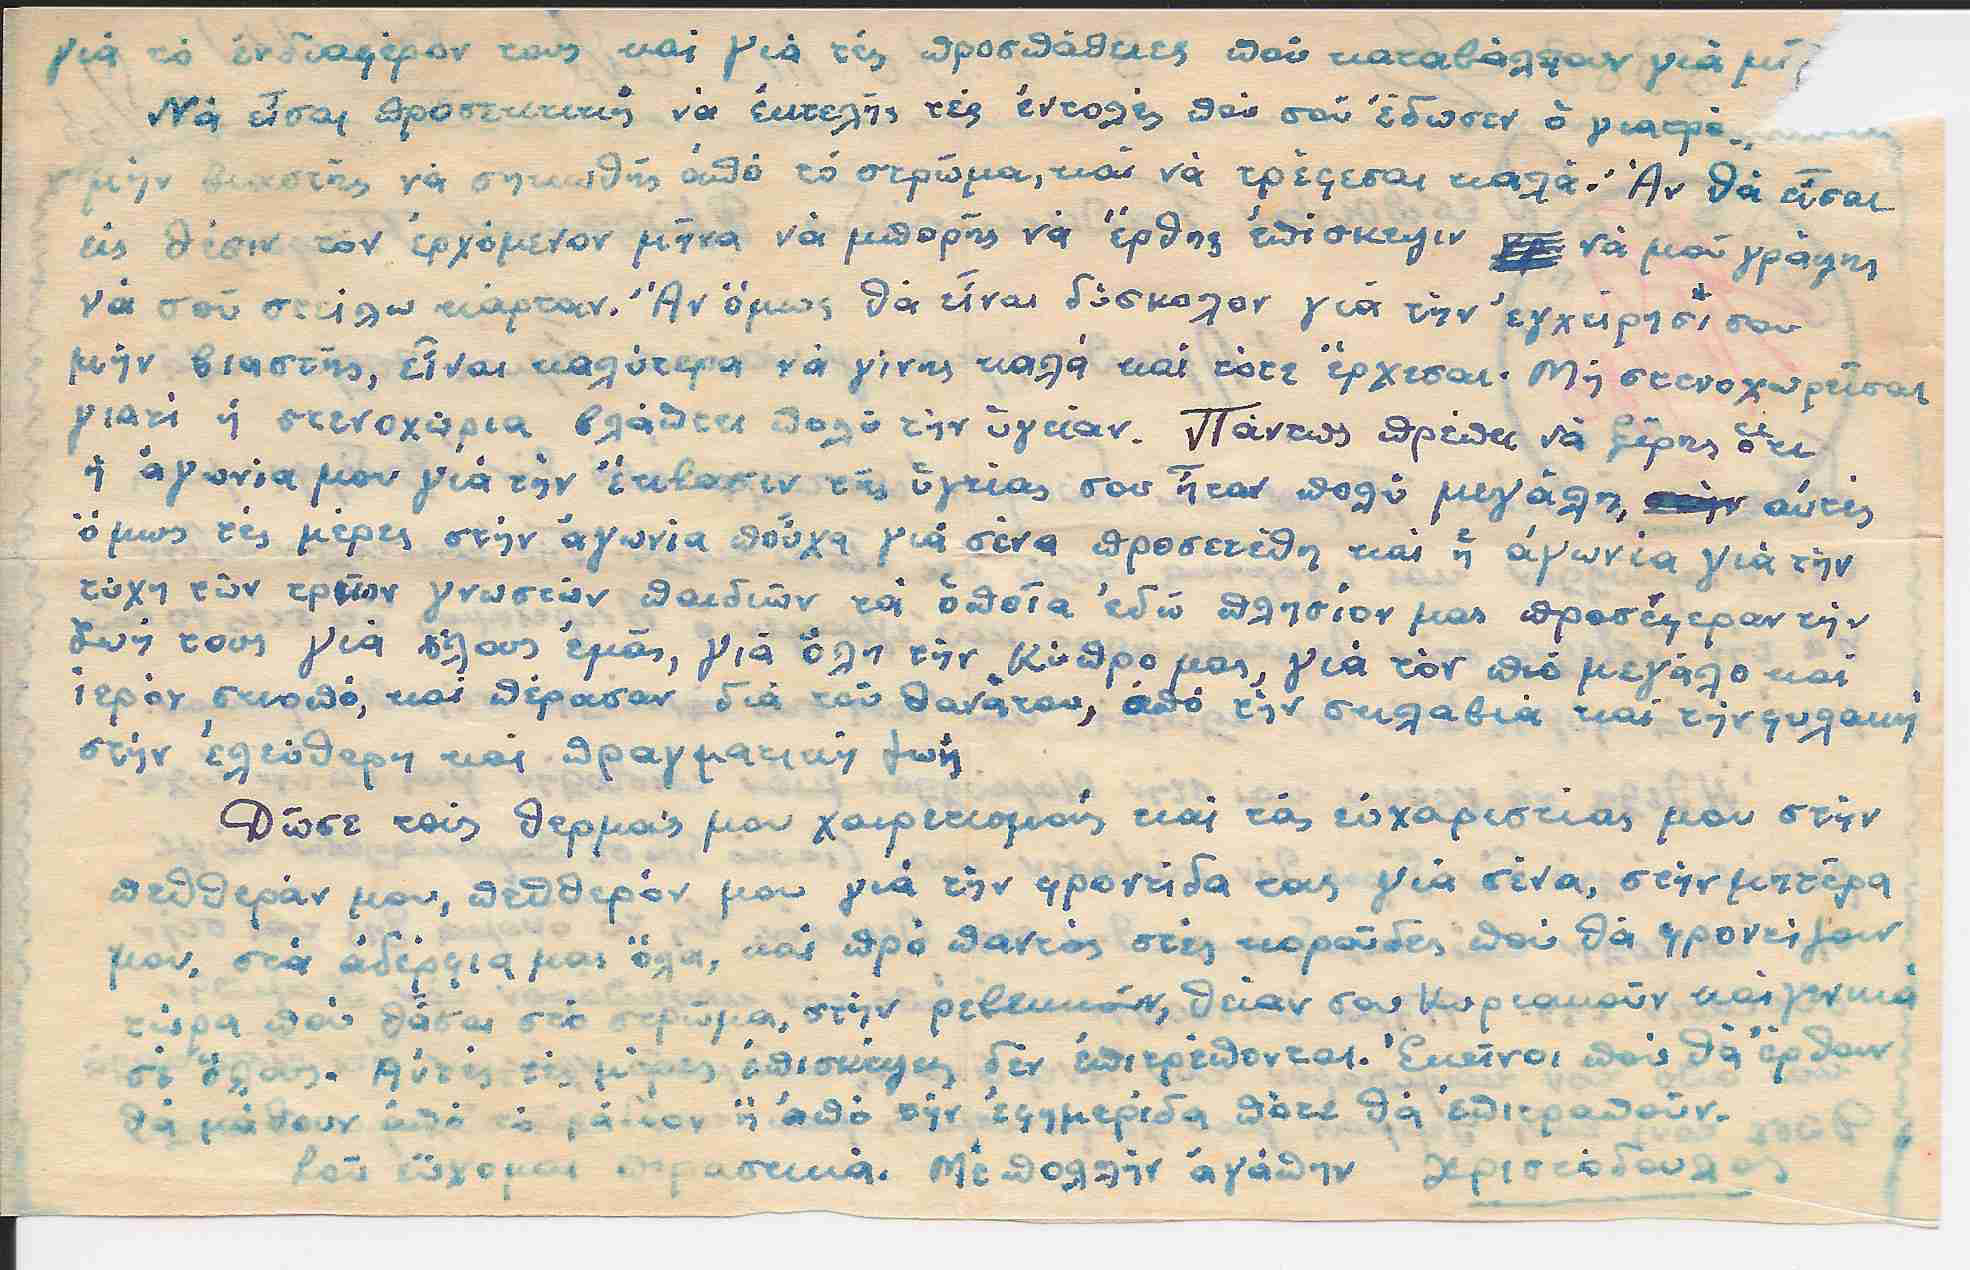 γιὰ τὸ ἐνδιαφέρον τους καὶ γιὰ τὲς προσπάθειες ποὺ καταβάλλουν γιὰ
Νὰ εἶσαι προσεκτικὴ νὰ ἐκτελῆς τὲς ἐντολὲς ποὺ σοῦ ἔδωσεν ὁ
μὴν βιαστῆς νὰ σηκωθῆς ἀπὸ τὸ στρῶμα, καὶ νὰ τρέφεσαι καλά. Ἂν θὰ εἶσαι
εἰς θέσιν τὸν ἐρχόμενον μῆνα νὰ μπορῆς νὰ ἔρθης ἐπίσκεψιν νὰ μοῦ γράψης
νὰ σοῦ στείλω κάρταν. Ἂν ὅμως θὰ εἶναι δύσκολον γιὰ τὴν ἐγχείρησί σου
μὴν βιαστῆς, εἶναι καλύτερα νὰ γίνης καλὰ καὶ τότε ἔρχεσαι. Μὴ στενοχωρεῖσαι
γιατὶ ἡ στενοχώρια βλάπτει πολὺ τὴν ὑγείαν. Πάντως πρέπει νὰ ξέρης ὅτι
ἡ ἀγωνία μου γιὰ τὴν ἔκβασιν τῆς ὑγείας σου ἦταν πολὺ μεγάλη, αὐτὲς
ὅμως τὲς μέρες στὴν ἀγωνία ποὖχα γιὰ σένα προσετέθη καὶ ἡ ἀγωνία γιὰ τὴν
τύχη τῶν τριῶν γνωστῶν παιδιῶν τὰ ὁποῖα ἐδῶ πλησίον μας προσέφεραν τὴν
ζωή τους γιὰ ὅλους ἐμᾶς, γιὰ ὅλη τὴν Κύπρο μας, γιὰ τὸν πιὸ μεγάλο καὶ
ἱερὸν σκοπό, καὶ πέρασαν διὰ τοῦ θανάτου, ἀπὸ τὴν σκλαβιὰ καὶ τὴν φυλακὴ
στὴν ἐλεύθερη καὶ πραγματικὴ ζωὴ
Δῶσε τοὺς θερμούς μου χαιρετισμοὺς καὶ τὰς εὐχαριστίας μου στὴν
πεθθεράν μου, πεθθερόν μου γιὰ τὴν φροντίδα τους γιὰ σένα, στὴν μητέρα
μου, στὰ ἀδέρφια μας ὅλα, καὶ πρὸ παντὸς στὲς κοροῦδες ποὺ θὰ φροντίζουν
τώρα ποὺ θἆσαι στὸ στρῶμα, στὴν ρεβεκκούν, θείαν σου Κυριακοῦν καὶ γενικὰ
σὲ ὅλους. Αὐτὲς τὲς μέρες ἐπισκέψεις δὲν ἐπιτρέπονται. Ἐκεῖνοι ποὺ θὰ ἔρθουν
θὰ μάθουν ἀπὸ τὸ ράδιον ἢ ἀπὸ τὴν ἐφημερίδα πότε θὰ ἐπιτραποῦν.
Σοῦ εὔχομαι περαστικά. Μὲ πολλὴν ἀγάπην Χριστόδουλος